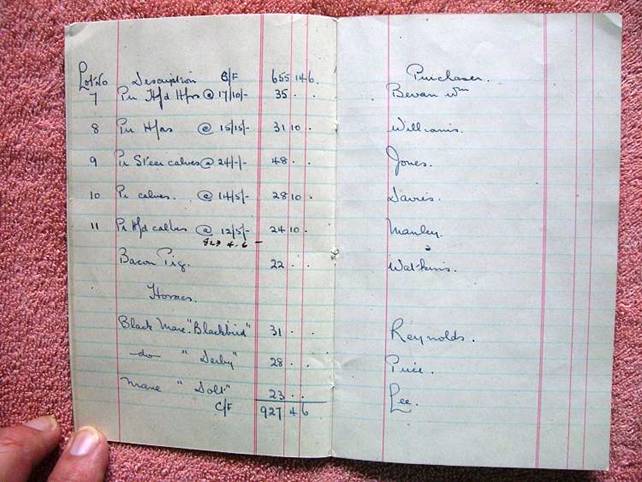 Lot No Description B/F 655 14 6. Purchaser.
7 Pr Hfd Hfrs @ 17/10/- 35 . . Bevan Wm
8 Pr Hfrs @ 15/15/- 31 10 . Williams.
9 Pr Steer calves @ 24/-/- 48 . . Jones.
10 Pr calves. @ 14/5/- 28 10 . Davies.
11 Pr Hfd calves @ 12/5/- 24 10 . Manley.
4. 6 -
Bacon Pig. 22 . . Watkins.
Horses.
Black Mare. "Blackbird" 31 . . Reynolds.
-do- " Derby" 28 . . Price.
Mare " Doll" 23 . . Lee.
C/F 927 4 6